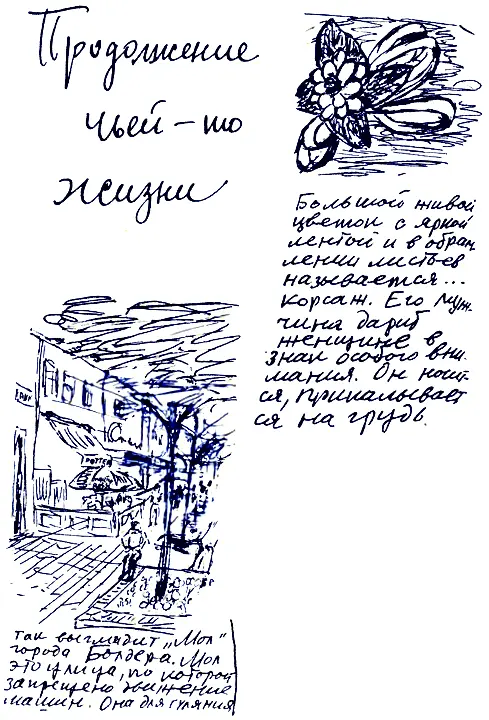 Продолжение
чьей-то
жизни
Большой живой
цветок с яркой
лентой и в обрам
лении листьев
называется...
корсаж. Его муж-
чина дарит
женщине в
знак особого вни
мания. Он носит-
ся, прикалывает
ся на грудь.
так выглядит "Мол"
города Болдера. Мол
это улица, по которой
запрещено движение
машин. Она для гуляния